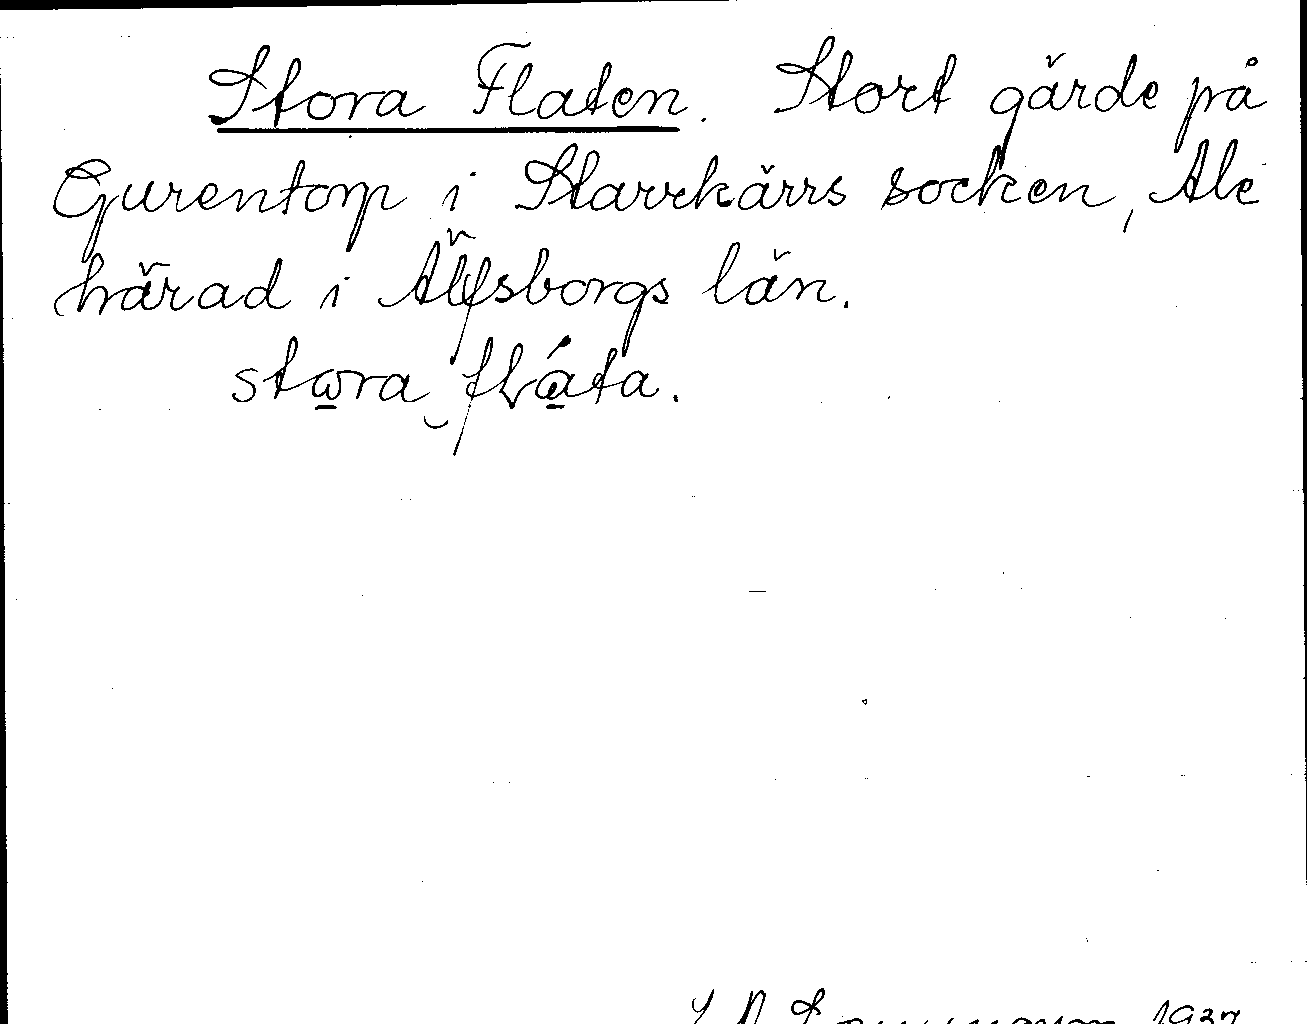 Stora Flaten. Stort gärde på
Gurentorp i Starrkärrs socken, Ale
härad i Älfsborgs län.
stωra‿flá̱ta.
1937